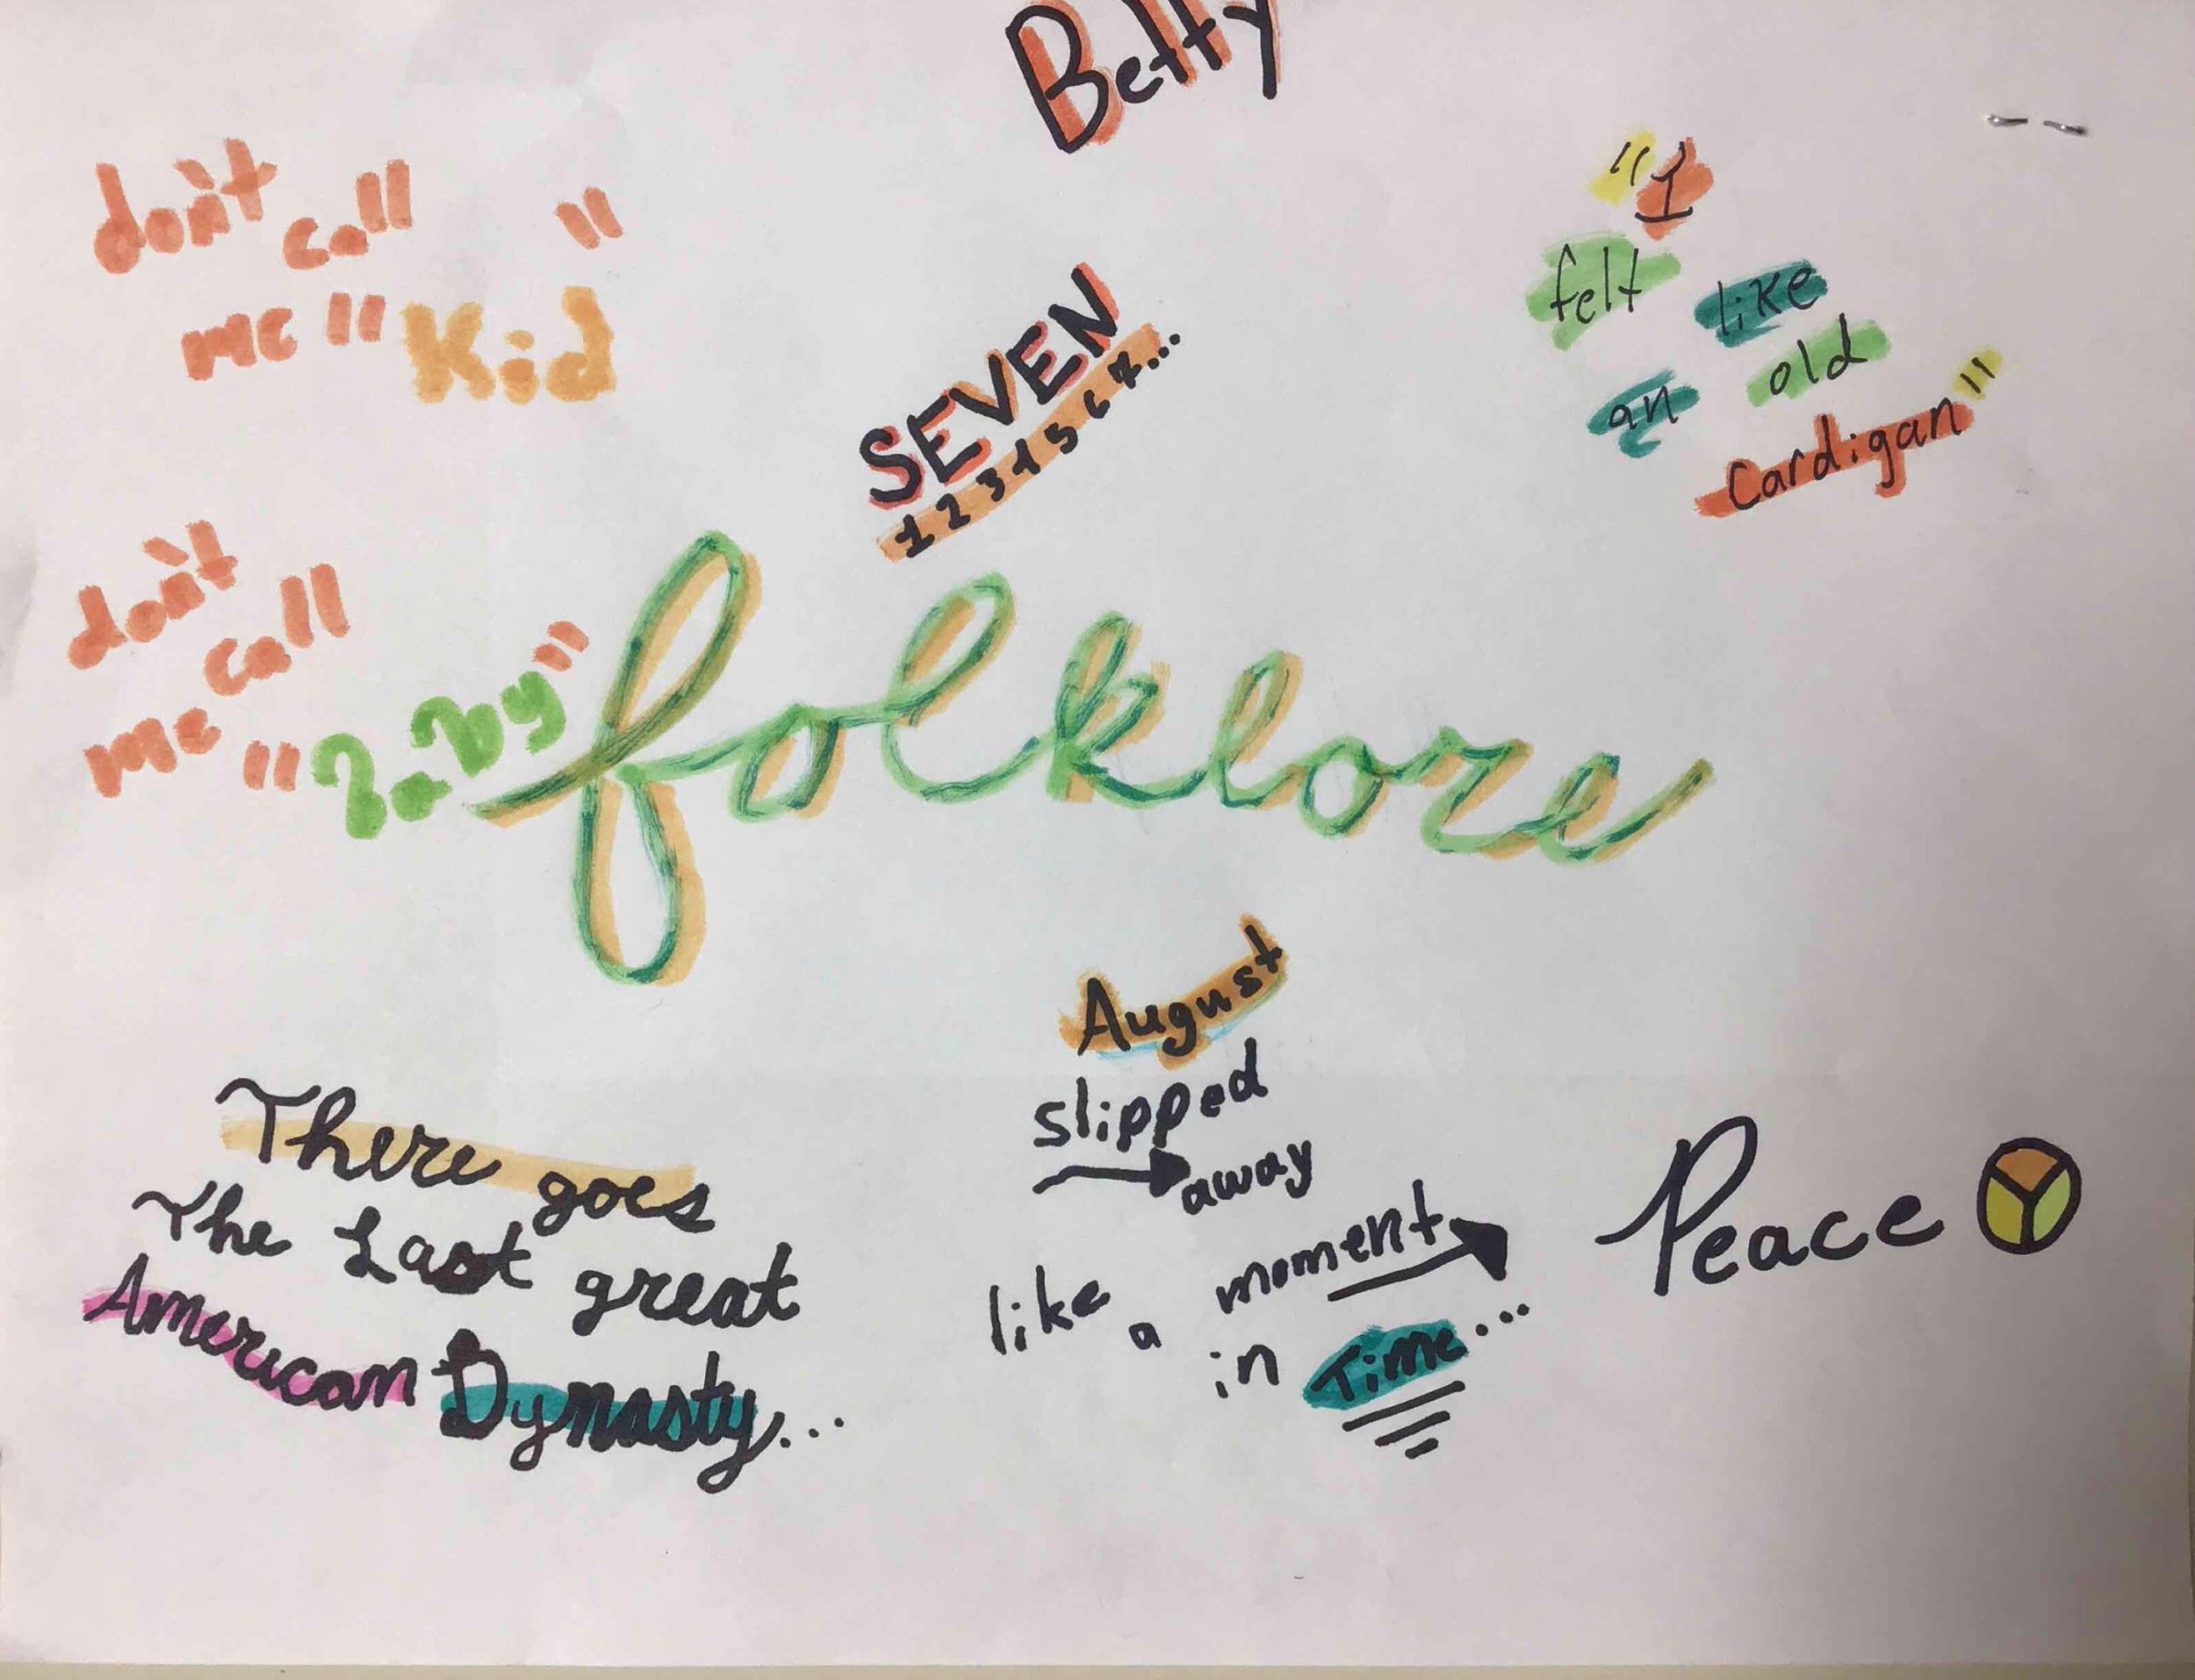 Betty
don't call
me "Kid"
"I
felt like
an old
Cardigan"
SEVEN
1 2 3 4 5 6 7...
don't
call
me "Baby"
folklore
August
slipped
away
like a moment
in Time...
There goes
The Last great
American Dynasty...
Peace